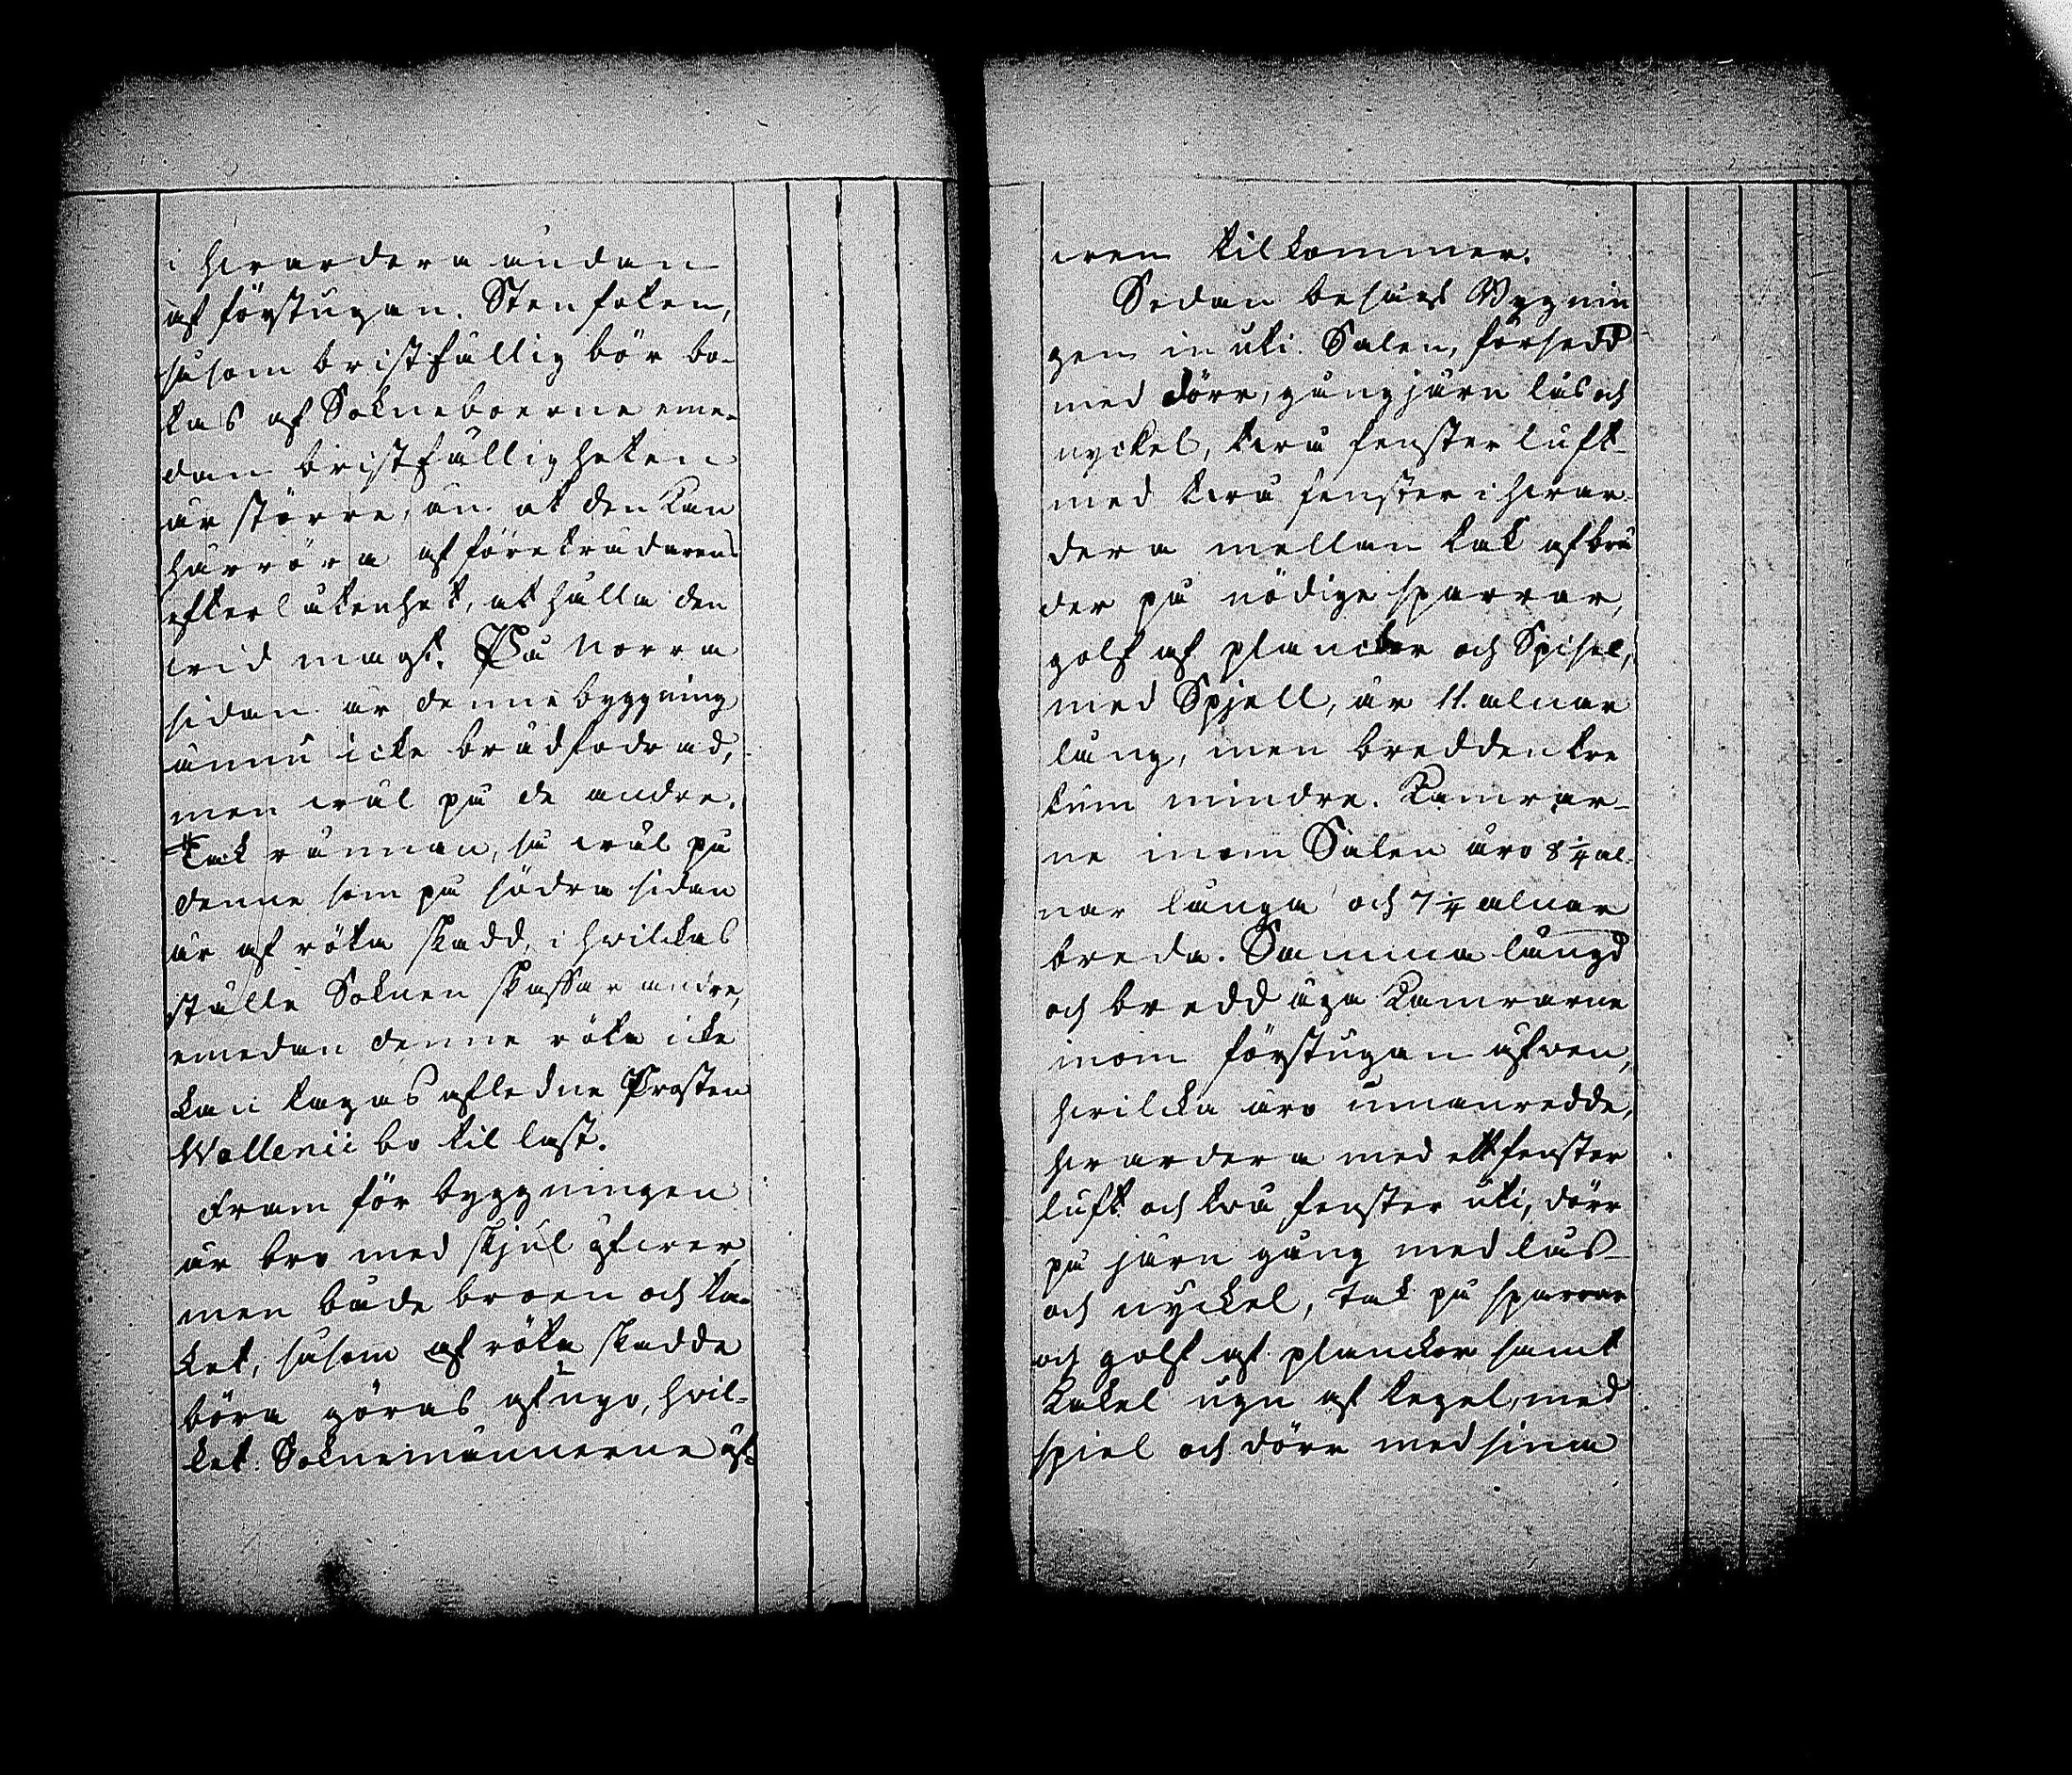 i hwardera ändan
af förstugan. Stenfoten,
såsom bristfällig bör bo-
tas af Sokneboerne eme-
dan bristfälligheten
är större, än at den kan
härröra af företrädarens
efterlåtenhet, at hålla den
wid magt. På Norra
sidan är denne byggning
ännu icke brädfodrad,
men wäl på de andre.
Tak rännan, så wäl på
denne som på södra sidan
är af röta skadd, i hwilckas
ställe Soknen skaffar andre,
emedan denne röta icke
kan tagas afledne Prosten
Wallenii bo til last.
Fram för byggningen
är bro med skjul öfwer,
men både broen och ta-
ket, såsom af röta skadde
böra göras af nyo, hwil-
ket Soknemännerne åt-
wen tilkommer.
Sedan besågs Bygnin
gen in uti. Salen, försedd
med dörr, gångjärn lås och
nyckel, twå fenster luft
med twå fenster i hwar-
dera mellan tak af brä
der på nödige sparrar,
golf af planckor och Spisel,
med Spjell, är 11. alnar
lång, men bredden tre
tum mindre. Kamrar-
ne inom Salen äro 8 1/4 al-
nar långa och 7 1/4 alnar
breda. Samma längd
och bredd äga Kamrarne
inom förstugan äfwen,
hwilcka äro umanredde,
hwardera med ett fenster
luft och twå fenster uti, dörr
på järn gång med lås
och nyckel, tak på sparrar
och golf af planckor samt
Kakel ugn af tegel, med
spiel och dörr med sinna